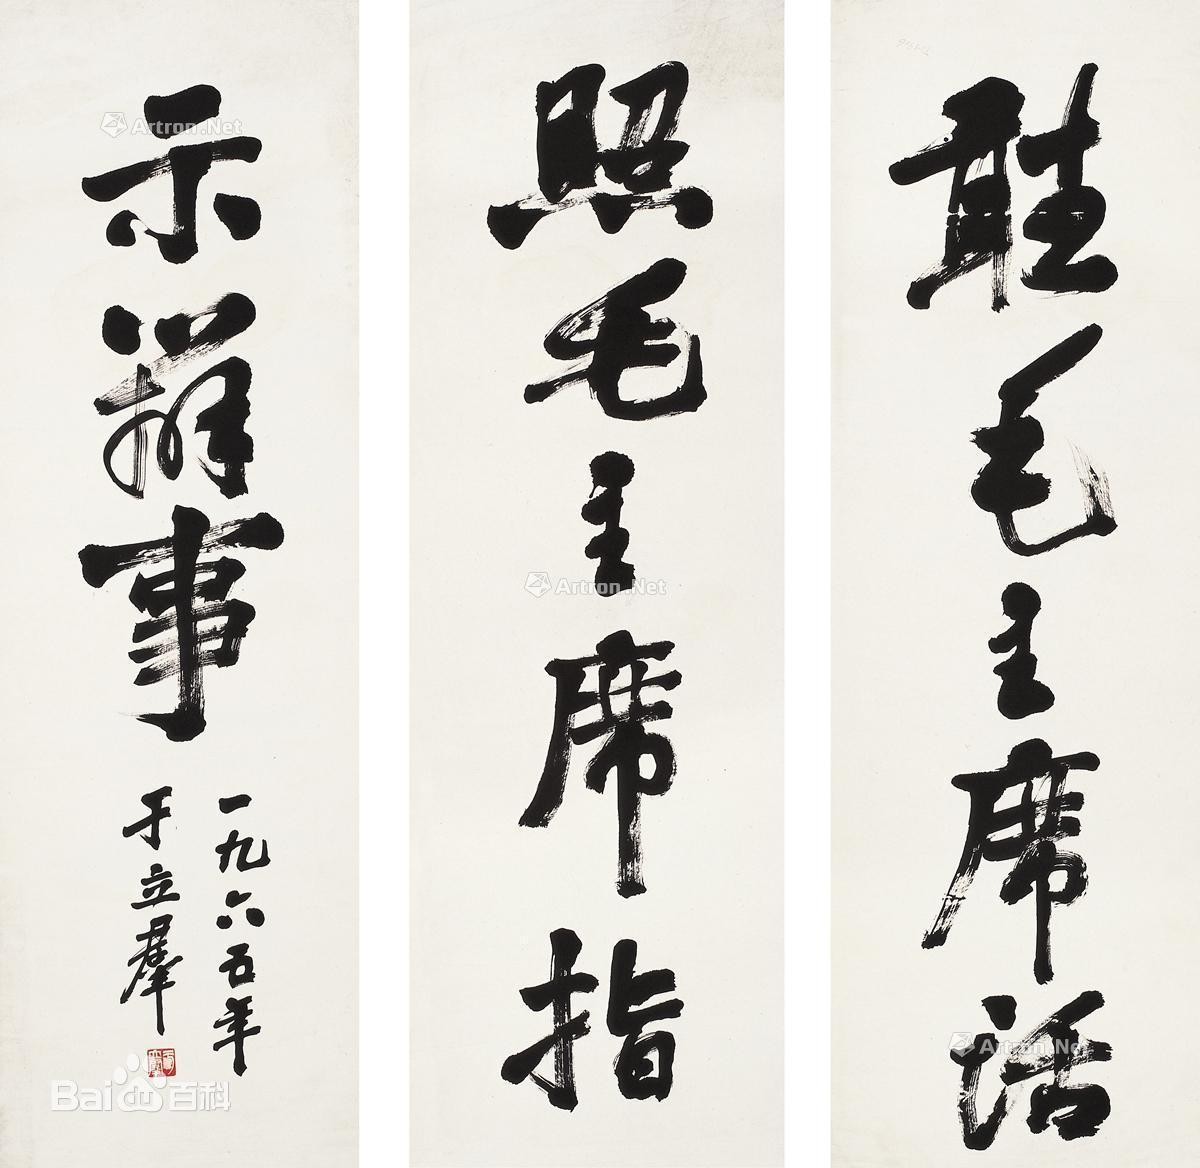 听毛主席话
照毛主席指
示辦事
一九六五年
于立羣
Artron.Net
Artron.Net
Artron.Net
Bai百科